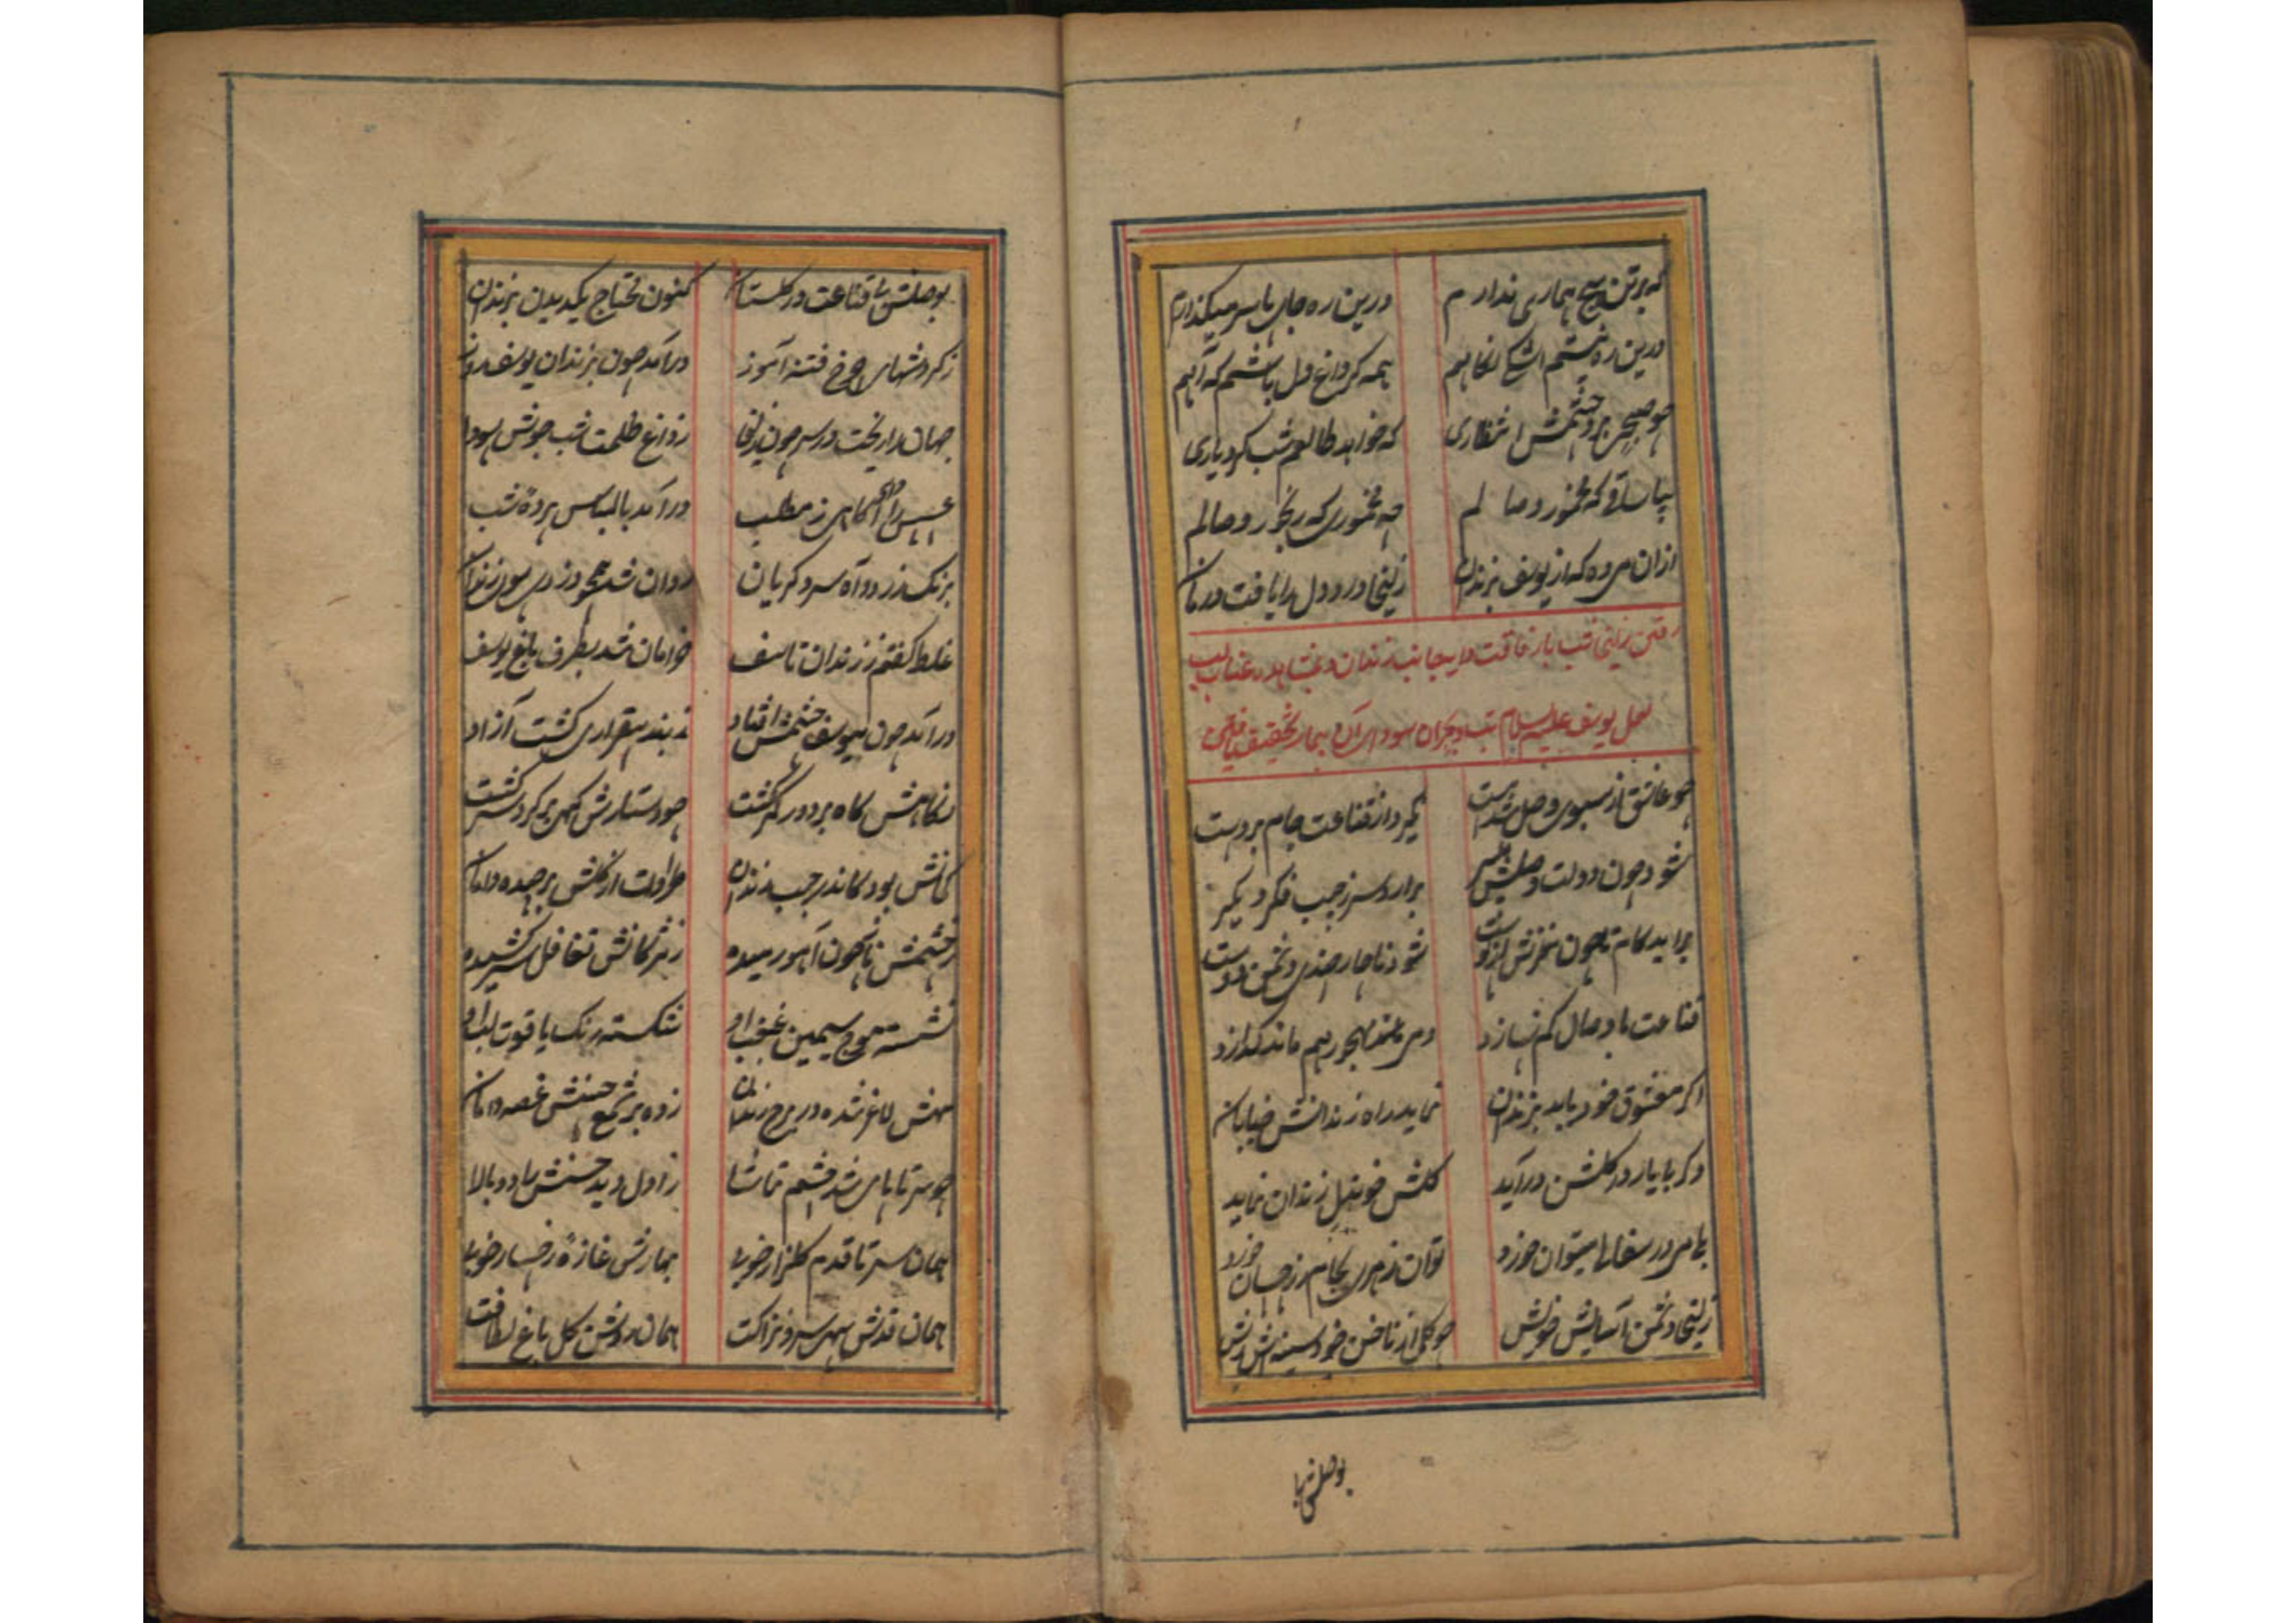 که بر تن هیچ همازی ندارم درین ره جای پا سر میگذارم
درین ره چشم اشک نگاهم همه گر داغ دل باشم که آهم
چو صبح بر چشمش انتظاری که خواهد طالعم شب کرد یاری
بیا ساقی که مخمور وصالم چه مخموری که رنجور وصالم
ازان می ده که از یوسف بزندان زلیخا درد دل را یافت درمان
رفتن زلیخا شب باز فاقت دایه بجانب زندان و بمشاهده عناب لب
لعل یوسف علیه السلام تب هجران سودای آن بیمار تخفیف یافتن
چو عاشق از سبوی وصل شد مست نگیرد از قناعت جام بر دست
شود چون دولت وصلش میسر برآرد سر ز جیب فکر دیگر
برآید کام تا چون مغزش از پوست شود ناچار چندی دشمن دوست
قناعت با وصال کم نسازد دمی ماند بهجر هم ماند گدازد
اگر معشوق خود یابد بزندان نماید راه زندانش خیابان
وگر با یار در گلشن درآید گلش خونین دل زندان نماید
بیا می در سفالها میتوان خورد توان زهری بجام زر چسان خورد
زلیخا دشمن آسایش خویش چو گل از ناخن خود سینه اش ریش
بوصلش با
بوصلش با قناعت در گلستان کنون محتاج یکدیدن بزندان
ز گردشهای چرخ فتنه آموز درآمد چون بزندان یوسف روز
جهان را ریخت در سر چون زلیخا ز داغ ظلمت شب جوش سودا
عسس را داد آگاهی ز مطلب درآمد با لباس پرده شب
برنگ زرد و آه سرد گریان روان شد همچو دزدی سوی زندان
غلط گفتم ز زندان تاسف خرامان شد بطرف باغ یوسف
درآمد چون بیوسف چشمش افتاد ز بند بیقراری گشت آزاد
نگاهش گاه بر دور کمر گشت چو دستارش گهی بر گرد سر گشت
گلش بود کاندر جیب زندان طراوت از گلش برچیده دامان
ز چشمش ناز چون آهو رمیده ز مژگانش تغافل سر کشیده
نشسته موج سیمین غبغب او شکسته رنگ یاقوت لب او
مهش لاغر شده در برج زندان زده بر شمع حسنش غصه دامان
چو سر تا پای شد چشم تماشا ز اول دید حسنش را دوبالا
همان سر تا قدم گلزار خوبی بهارش غازه رخسار خوبی
همان قدش سهی سرو نزاکت همان رویش گل باغ لطافت